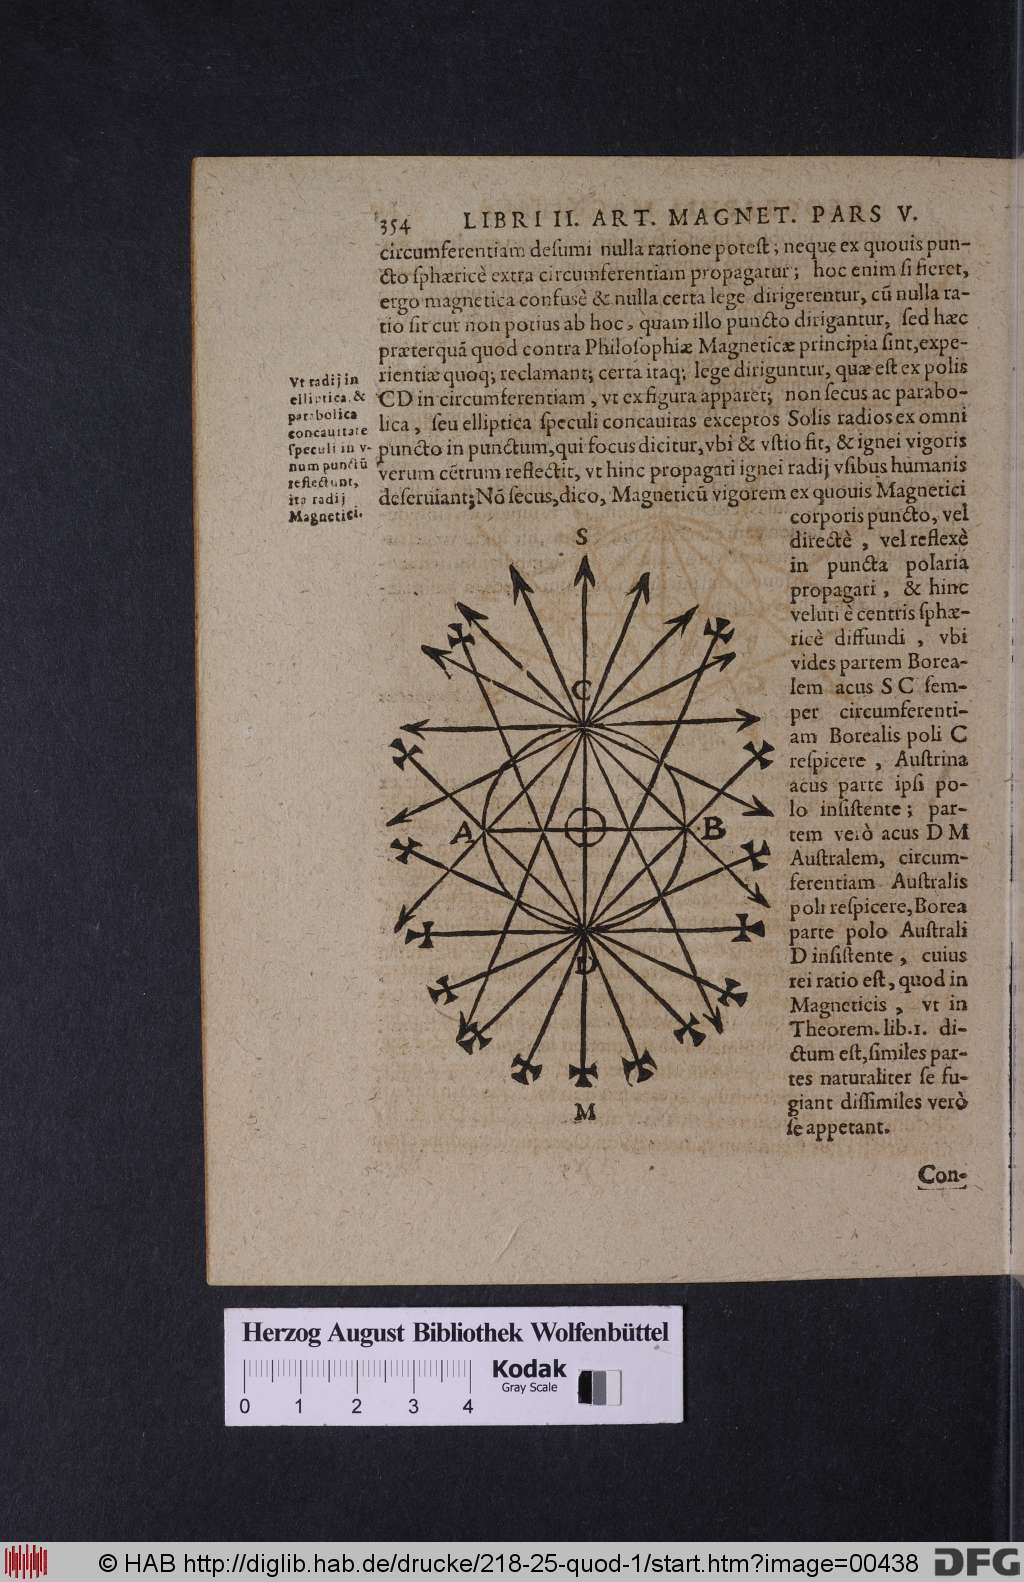 354 LIBRI II. ART. MAGNET. PARS V.
circumferentiam deſumi nulla ratione poteſt; neque ex quouis pun-
cto ſphæricè extra circumferentiam propagatur; hoc enim ſi fieret,
ergo magnetica confusè & nulla certa lege dirigerentur, cū nulla ra-
tio ſit cur non potius ab hoc, quam illo puncto dirigantur, ſed hæc
præterquā quod contra Philoſophiæ Magneticæ principia ſint, expe-
rientiæ quoq; reclamant; certa itaq; lege diriguntur, quæ eſt ex polis
CD in circumferentiam, vt ex figura apparet; non ſecus ac parabo-
lica, ſeu elliptica ſpeculi concauitas exceptos Solis radios ex omni
puncto in punctum, qui focus dicitur, vbi & vſtio fit, & ignei vigoris
verum cētrum reflectit, vt hinc propagati ignei radij vſibus humanis
deſeruiant; Nō ſecus, dico, Magneticū vigorem ex quouis Magnetici
corporis puncto, vel
directè, vel reflexè
in puncta polaria
propagari, & hinc
veluti è centris ſphæ-
ricè diffundi, vbi
vides partem Borea-
lem acus S C ſem-
per circumferenti-
am Borealis poli C
reſpicere, Auſtrina
acus parte ipſi po-
lo inſiſtente; par-
tem verò acus D M
Auſtralem, circum-
ferentiam Auſtralis
poli reſpicere, Borea
parte polo Auſtrali
D inſiſtente, cuius
rei ratio eſt, quod in
Magneticis, vt in
Theorem. lib. 1. di-
ctum eſt, ſimiles par-
tes naturaliter ſe fu-
giant diſſimiles verò
ſe appetant.
Con-
Vt radij in
elliptica, &
parabolica
concauitate
ſpeculi in v-
num punctū
reflectunt,
ita radij
Magnetici.
S
C
A
B
D
M
Herzog August Bibliothek Wolfenbüttel
Kodak
Gray Scale
0 1 2 3 4
© HAB http://diglib.hab.de/drucke/218-25-quod-1/start.htm?image=00438
DFG